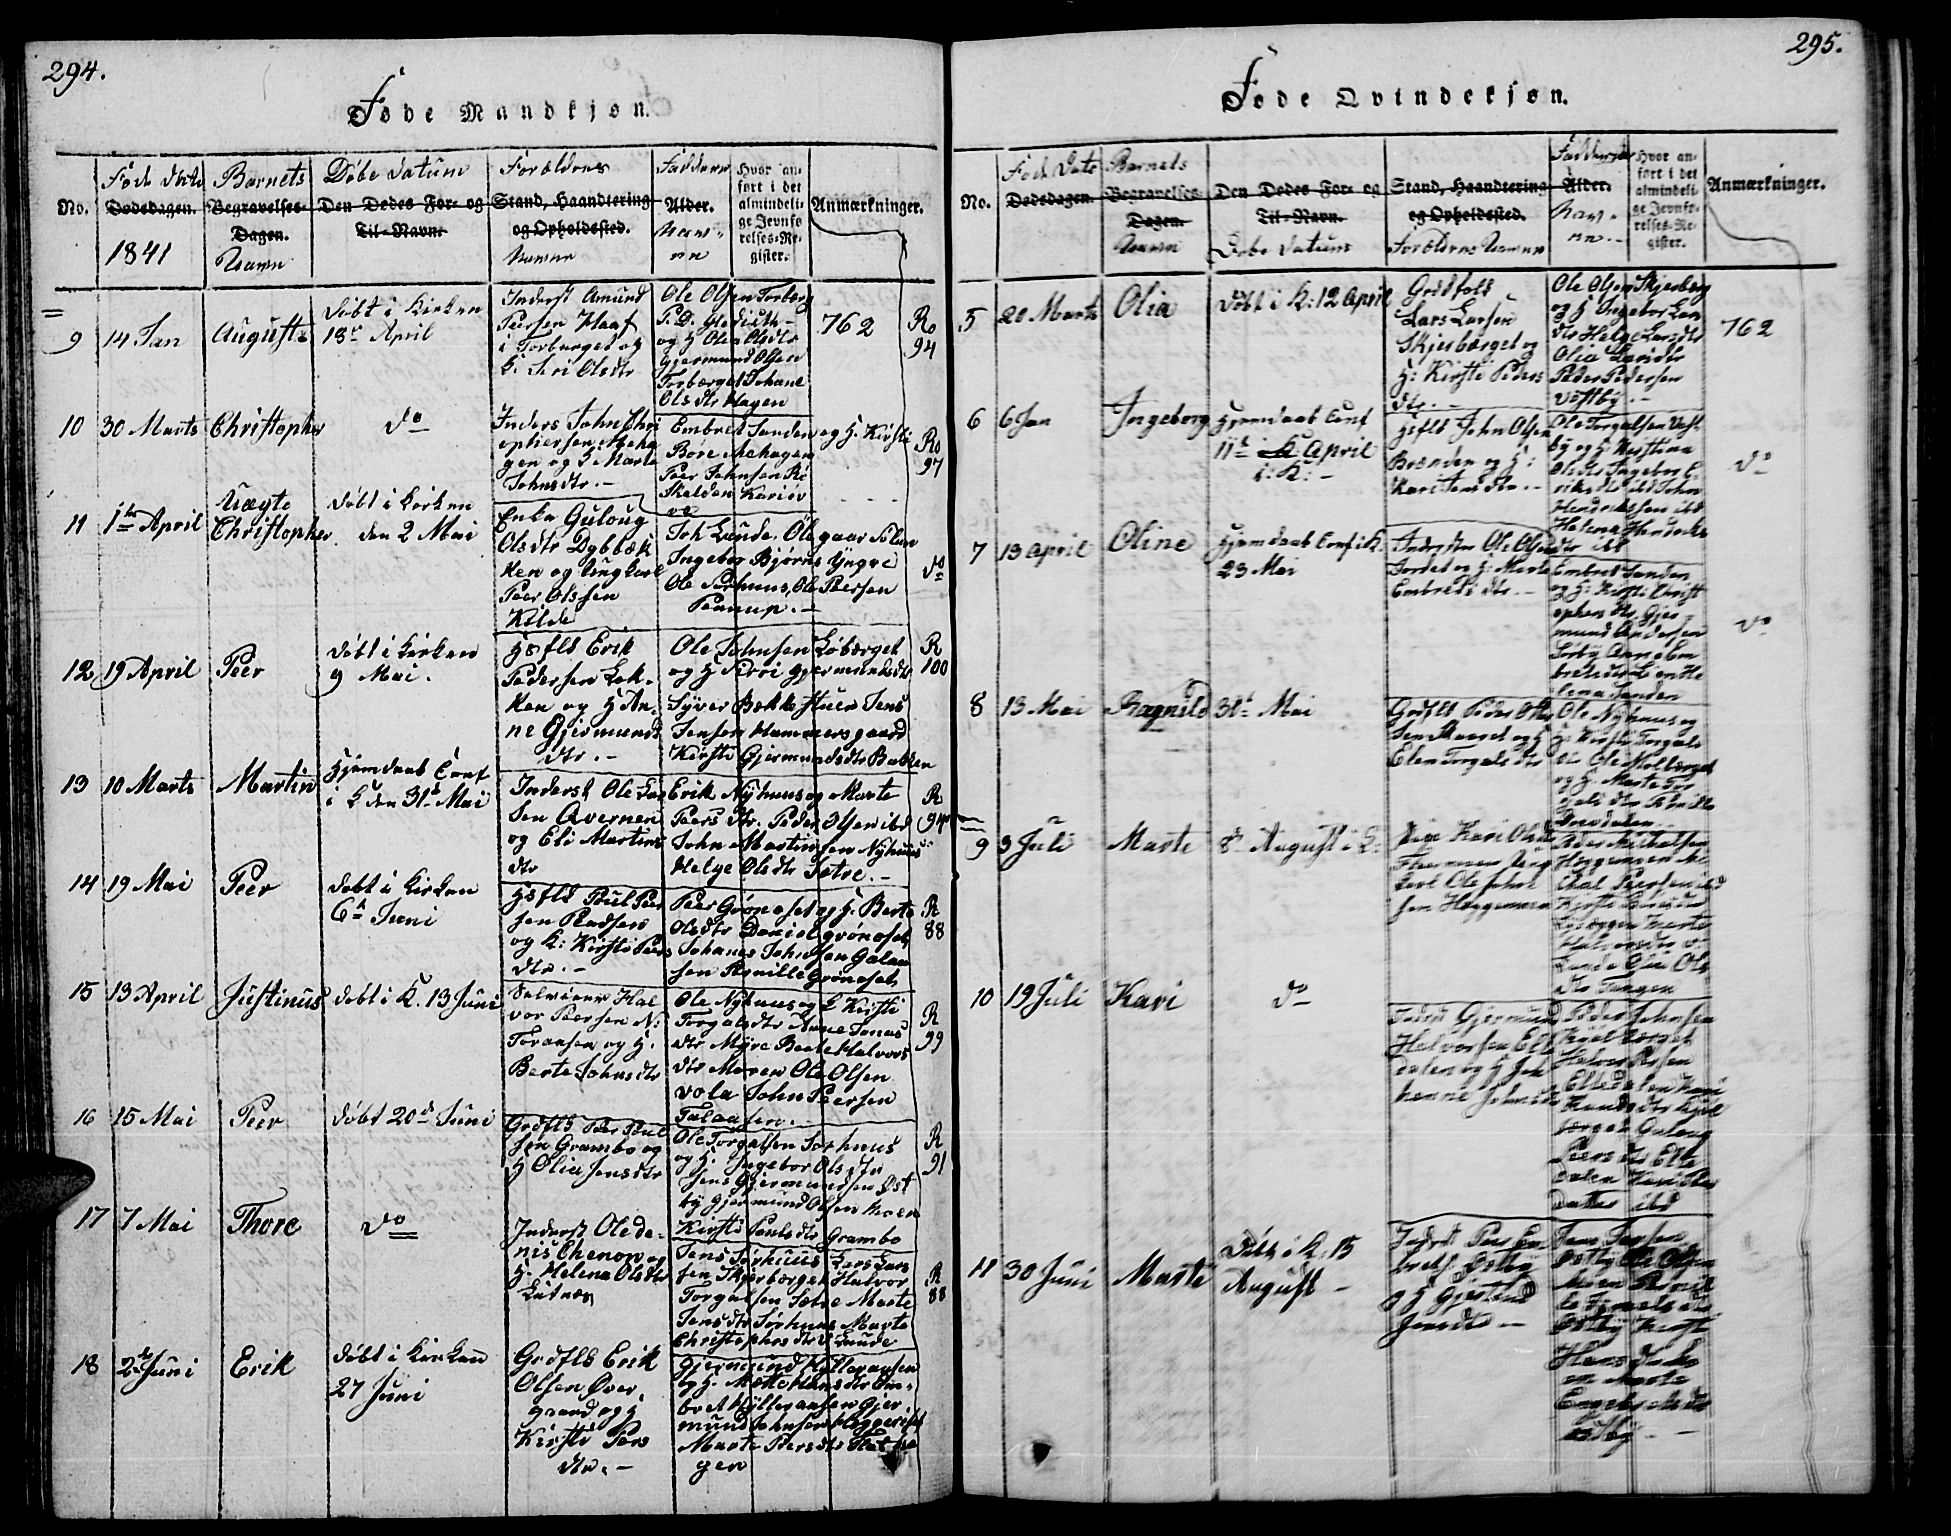 294.
Føde Mandkjøn.
No.
Føde Dato
Dødsdagen.
1841
Barnets
Begravelses-
Dagen.
Navn
Døbe Datum
Den Dødes For- og
Til-Navn.
Forældres
Stand, Haandtering
og Opholdssted.
Navne
Faddere
Alder.
Hvor an-
ført i det
almindeli-
ge Jevnfø-
relses-Re-
gister.
Anmærkninger.
9
14 Jan
August
Døbt i Kirken
18de April
Inderst Amund
Persen Haaf
i Torberget og
H. Siri Olsdtr
Ole Olsen Torberg
og H Olea Olsdtr
Gjermund Olsen
Torberget Johane
Olsdtr Hagen
762
Ro
94
10
30 Marts
Christopher
do
Inders John Chri
ophersen Meha
gen og H Marte
Johnsdtr. -
Embret Sanden og H. Kirsti
Børe Mehagen
Peer Johnsen Ri
Ro
97
11
1ste April
Uægte
Christopher
Døbt i Kirken
den 2 Mai
Enke Guloug
Olsdtr Dybbæk
ken og Ungkarl
Peer Olssen
Kilde
Joh Lunde, Ole
Ingebor Bjørns Yngve
Ole Sørhuus, Ole Peersen
do
12
19 April
Peer
Døbt i Kirken
9 Mai.
Hsflb Erik
Pedersen Løk-
ken og H An-
ne Gjermunds
dtr. -
Ole Johnsen Løberget
og H Siri Gjermundsdtr
Syver Bækkestuen Jens
Jensen Hammersgaard
Kirsti Gjermundsdtr Bakken
R
100
13
10 Marts
Martin
Hjemdøbt Conf
i K den 31te Mai
Inderst Ole Lar
sen Qvernen
og Eli Martins
dtr
Erik Nyhuus og Marte
Peers dtr. Peder Olsen ibd
John Martinsen Nyhuus
Helge Olsdtr Sætre. -
R
94
14
19 Mai
Peer
Døbt i Kirken
6te Juni
Hsflb Poul Peer
sen Pladsen
og H: Kirsti Peers
dtr. -
Peer Grønoset og H. Berte
Olsdtr Daniel Grønoset
Johanes Johnsen Galaa
sen Pernille Grønoset
R
88
15
13 April
Justinus
døbt i K. 13 Juni
Selveier Hal
vor Peersen N:
Toraasen og H.
Berte Johnsdtr
Ole Nyhuus og H Kirsti
Torgalsdtr Anne Jonas
dtr Myre Berte Halvors
dtr Moren Ole Olsen
vola John Peersen
Galaasen. -
R
99
16
15 Mai
Peer
døbt 20de Juni
Grdflb Peer Poul
sen Grambo og
H Olia Jensdtr
Ole Torgalsen Sørhuus
og H. Ingebor Olsdtr
Jens Gjermundsen Øst
by Gjermund Olsen Moen
Kirsti Poulsdtr Grambo
R
91
17
7 Mai
Thore
do
Inderst Ole de-
nis Chenow og
H. Helena Olsdtr
Lutnæs
Jens Sørhuus Lars Lars
sen Skjerberget Halvor
Torgalsen Sætre Marte
Jensdtr Sørhuus Marte
Christophersdtr Lunde
R
88
18
2de Juni
Erik
Døbt i Kirken
27 Juni
Grdflb Erik
Olsen Øver-
grand og H
Kirsti Pers
dtr. -
Gjermund Hylleraasen
og H. Mette Hansdtr Em-
bret Hylleraasen Gjer
mund Johnsen Haggeriset
Marte Persdtr
gen
295.
Føde Qvindekjøn.
No.
Føde Dato
Dødsdagen.
Barnets
Begravelses-
Dagen.
Navn
Den Dødes For- og
Til-Navn.
Døbe Datum
Stand, Haandtering
og Opholdssted.
Forældrenes Navne
Faddernes
Alder.
Hvor an-
ført i det
almindeli-
ge Jevnfø-
relses-Re-
gister.
Anmærkninger.
5
20 Marts
Olia
Døbt i K: 12 April
Grdfolk
Lars Larsen
Skjerberget og
H: Kirsti Peders
dtr. -
Ole Olsen Skjerberg
og H Ingebor Lars
dtr Helge Larsdtr
Olia Larsdtr
Peder Pedersen
Østby. -
762
6
6 Jan
Ingeborg
Hjemdøbt Conf
11te April
i K: -
Hsflb John Olsen
Brænden og H:
Kari Jens dtr. -
Ole Torgalsen Vest
by og H Kristina
Olsdtr Ingebor E
riksdtr ibd John
Hendriksen ibd
Helena Hendriks
dtr ibd
do
7
13 April
Oline
Hjemdøbt Conf i K.
23 Mai
Ole Olsen
Jordet og H: Marte
Embrets dtr. -
Embret Sanden
og H: Kirsti Christ
ophersdtr Gjer
mund Andersen
Sørby Anne Em
bretsdtr Lien He
lena Sanden
do
8
13 Mai
Ragnild
31te Mai
Grdflb Peder Ols
sen og H
Elen Torgals dtr
Ole Nyhuus og
H: Kirsti Torgals
dtr Ole Holberget
og H. Marte Tor
gals dtr Pernille
9
3 Juli
Marte
8de August i K:
Pige Kari Olsdtr
Ung
karl Ole John
sen Haggemoen
Peder Mikkelsen
Haggemoen Mi
chal Peersen ibd
10
19 Juli
Kari
do
Inderst Gjermund
Halvorsen Elte
dalen og H Joh
hanne Johnsdtr
Peder Johnsen
Kjølberget
Halvor Persen
Eltedalen Kari
Knudsdtr Kjøl
berget Guloug
Peers dtr Elte
dalen Kari Peer
datter ibd
11
30 Juni
Marte
Døbt i K: 15
August -
Inderst Peer Em
brets Østby
og H Gjertrud
Jensdtr -
Jens Jensen
Østby Ole Olsen
Moen Pernil
le
Østby Kirsti
Hans dtr
en Marte
Engebretsdtr
Østby - -